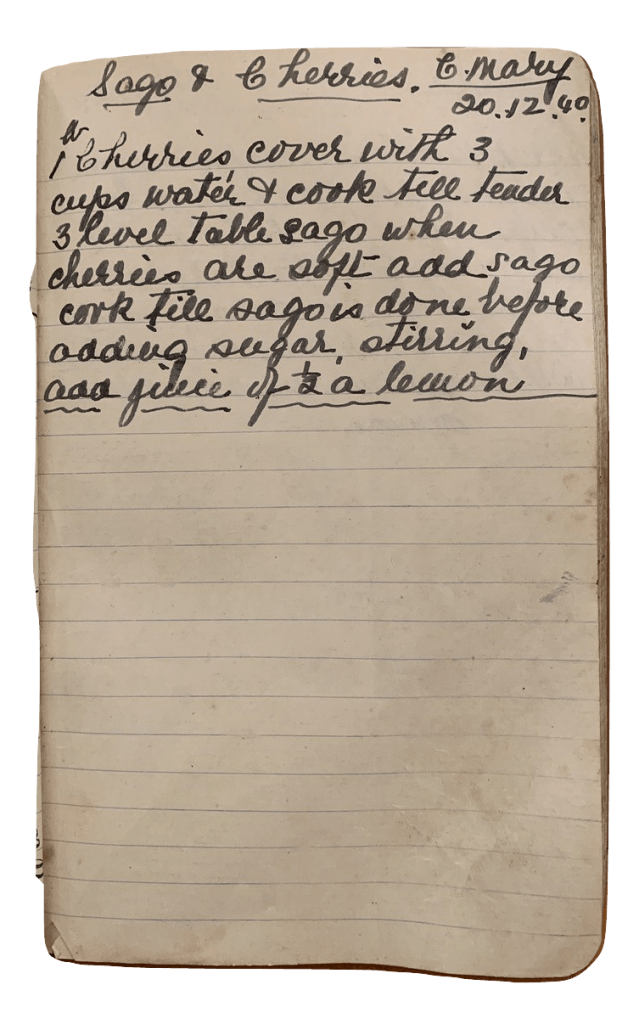 Sago & Cherries. C. Mary
20.12.40
1 lb Cherries cover with 3
cups water & cook till tender
3 level table sago when
cherries are soft add sago
cook till sago is done before
adding sugar, stirring,
add juice of ½ a lemon